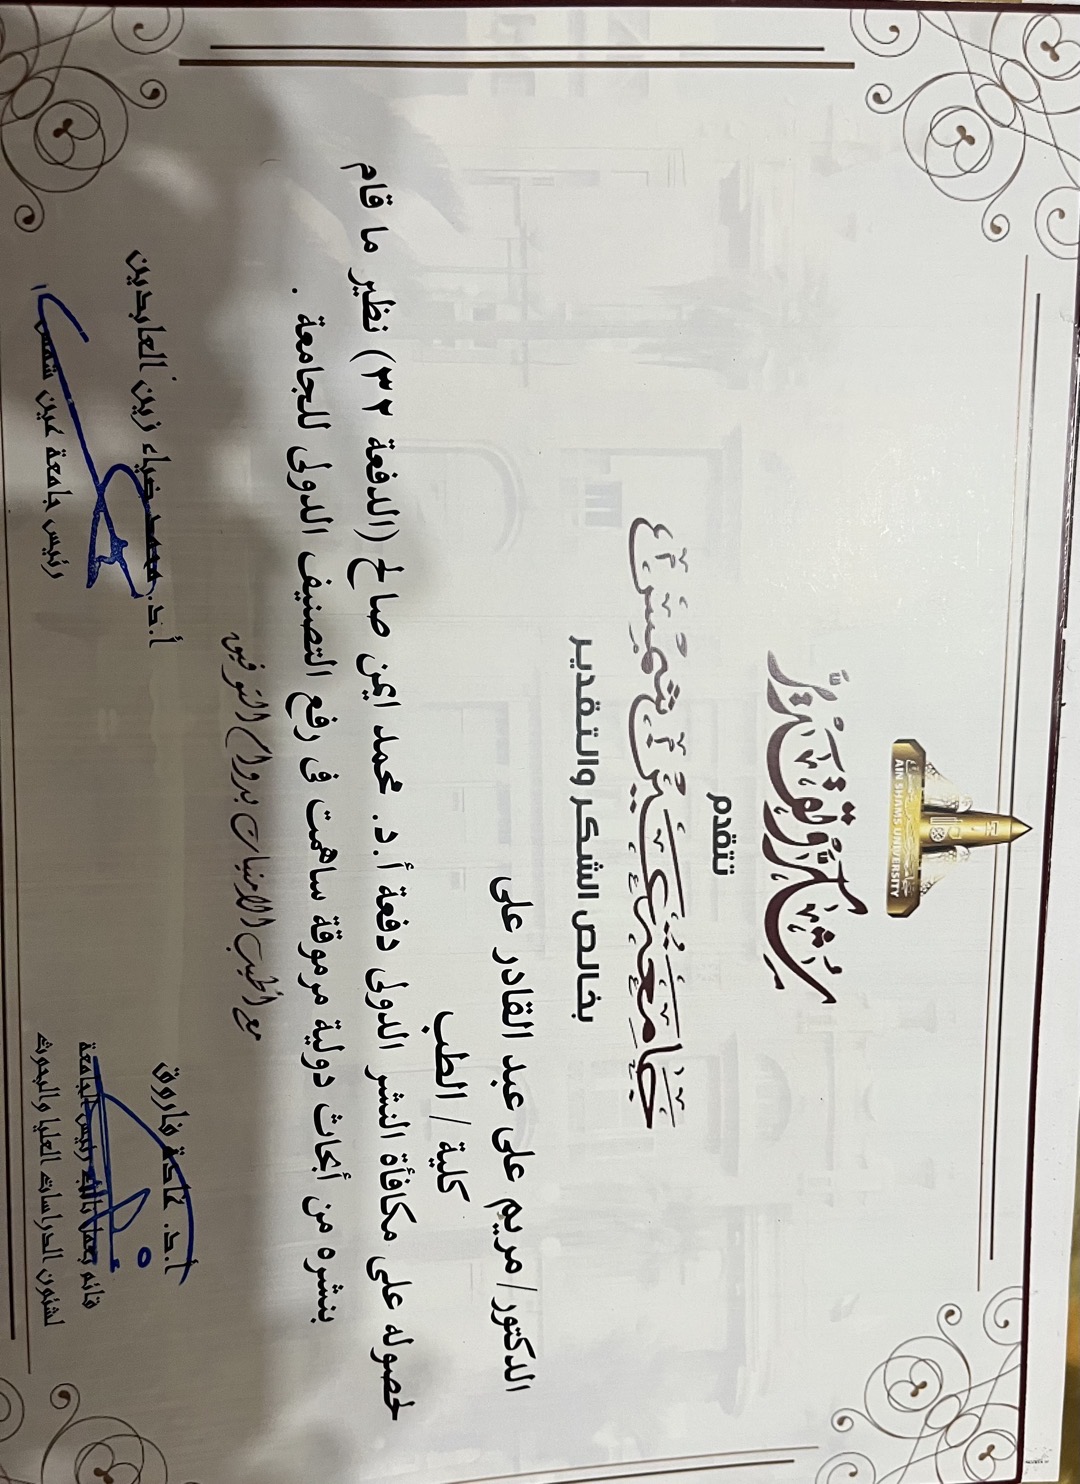 AIN SHAMS UNIVERSITY
شكر وتقدير
تتقدم
جامعة عين شمس
بخالص الشكر والتقدير
الدكتور / مريم على عبد القادر على
كلية / الطب
لحصوله على مكافأة النشر الدولى دفعة أ.د. محمد ايمن صالح (الدفعة ٣٢) نظير ما قام
بنشره من أبحاث دولية مرموقة ساهمت فى رفع التصنيف الدولى للجامعة .
مع أطيب الامنيات بدوام التوفيق
أ.د. غادة فاروق
قائم بعمل نائب رئيس الجامعة
لشئون الدراسات العليا والبحوث
أ.د. محمد ضياء زين العابدين
رئيس جامعة عين شمس